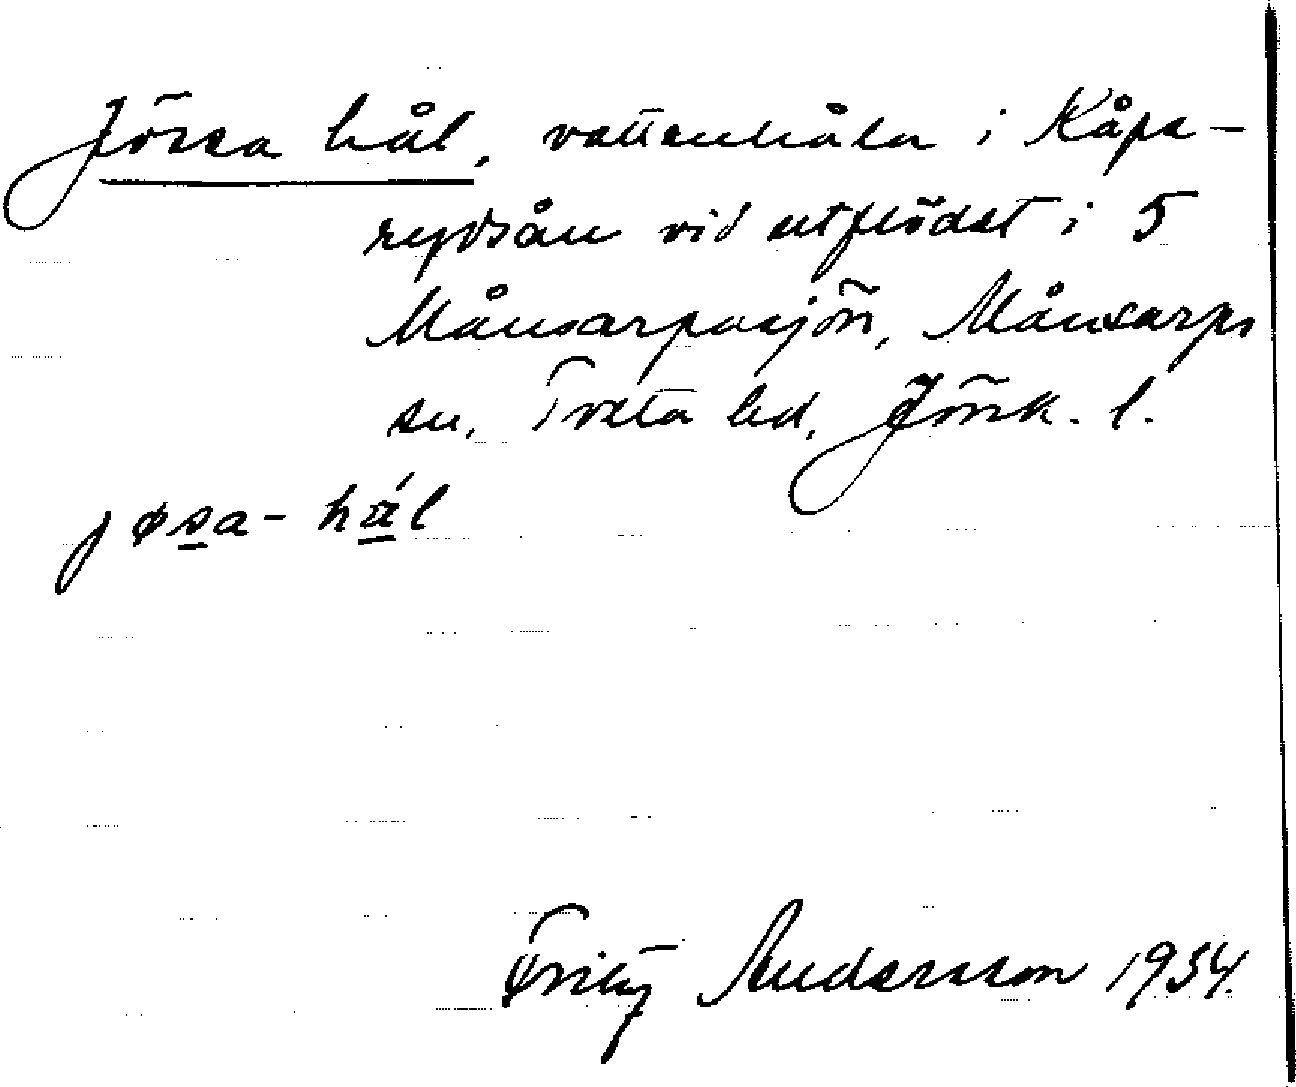 Jössa hål, vattenhåla i Kåpe-
rydsån vid utflödet i 5
Månsarpasjön, Månsarps
sn, Tveta hd, Jönk. l.
jøsa-hál
Fritz Andersson 1934.